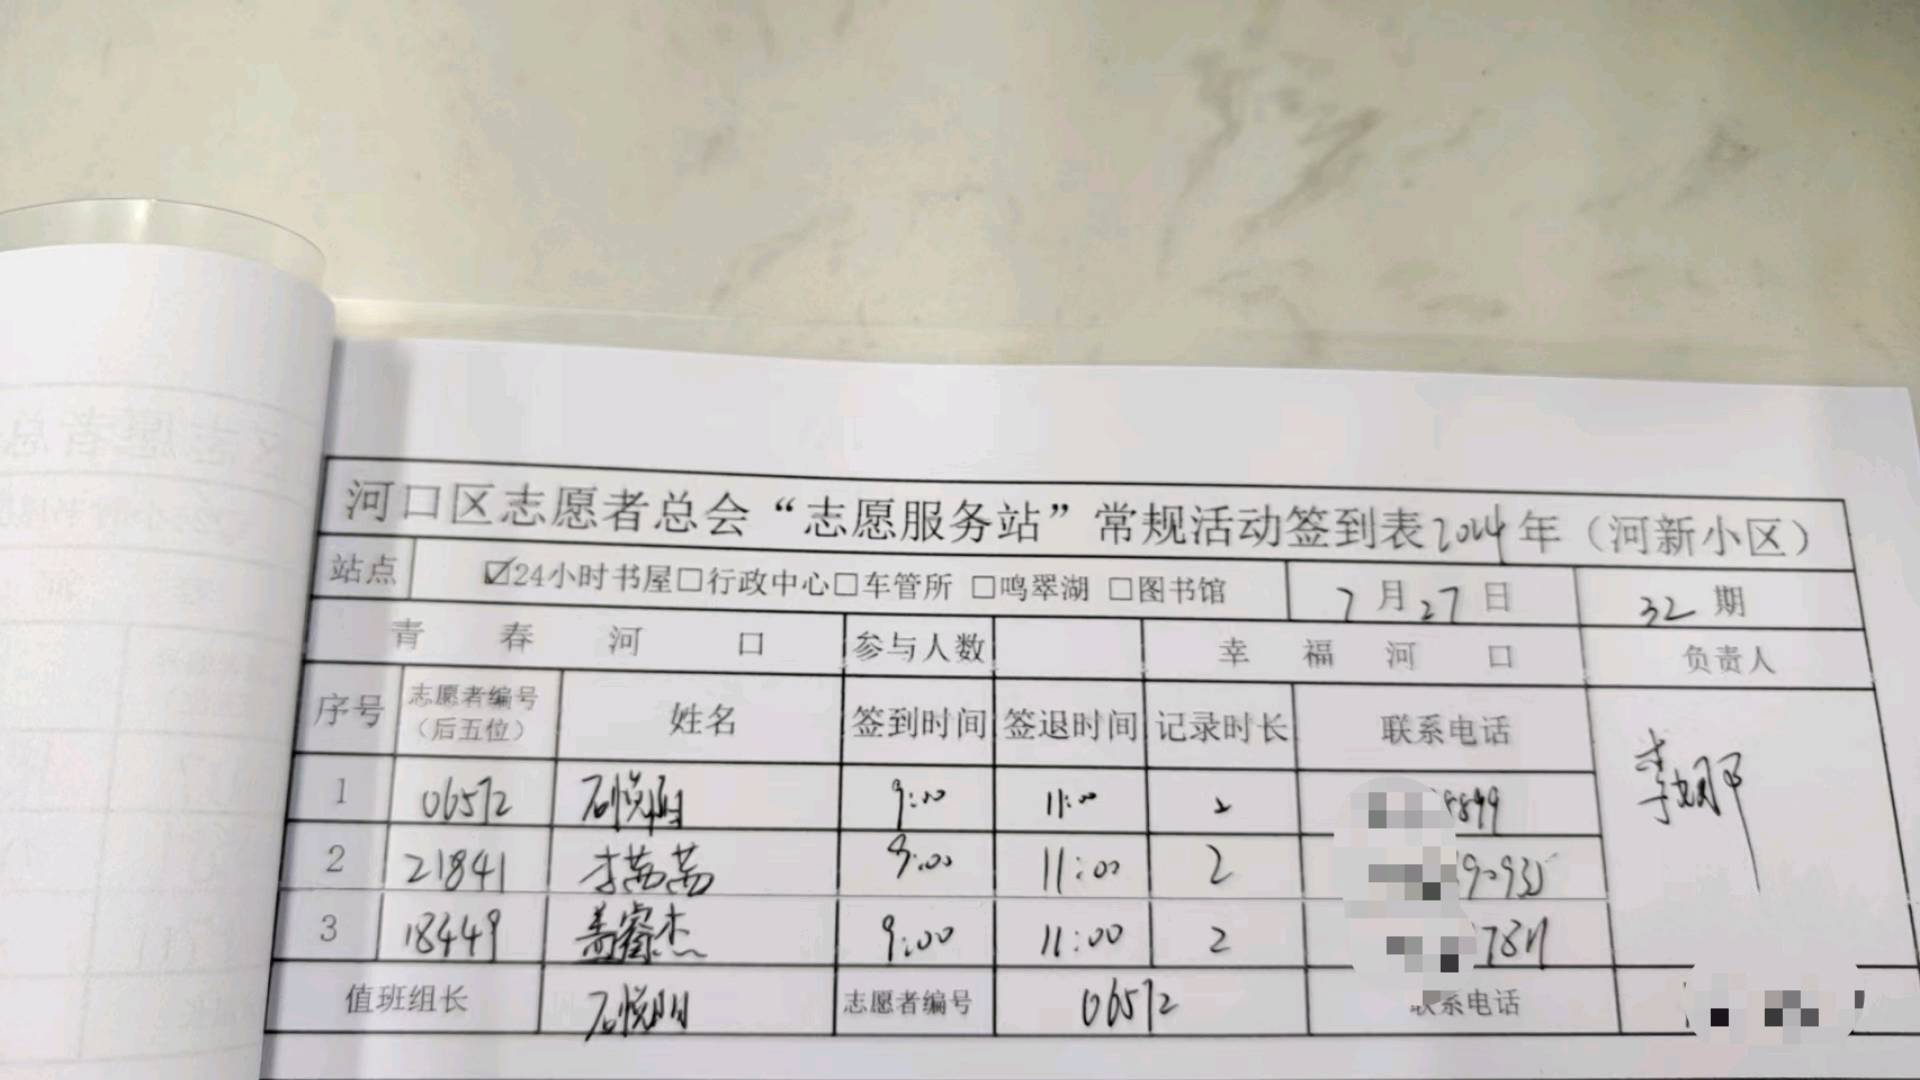 河口区志愿者总会“志愿服务站”常规活动签到表2024年（河新小区）
站点 ☑24小时书屋□行政中心□车管所 □鸣翠湖 □图书馆 7月27日 32期
青春河口 参与人数 幸福河口 负责人
序号 志愿者编号（后五位） 姓名 签到时间 签退时间 记录时长 联系电话
1 06572 石悦明 9:00 11:00 2 8899
2 21841 李茜茜 9:00 11:00 2
3 18449 盖睿杰 9:00 11:00 2
值班组长 石悦明 志愿者编号 06572 联系电话